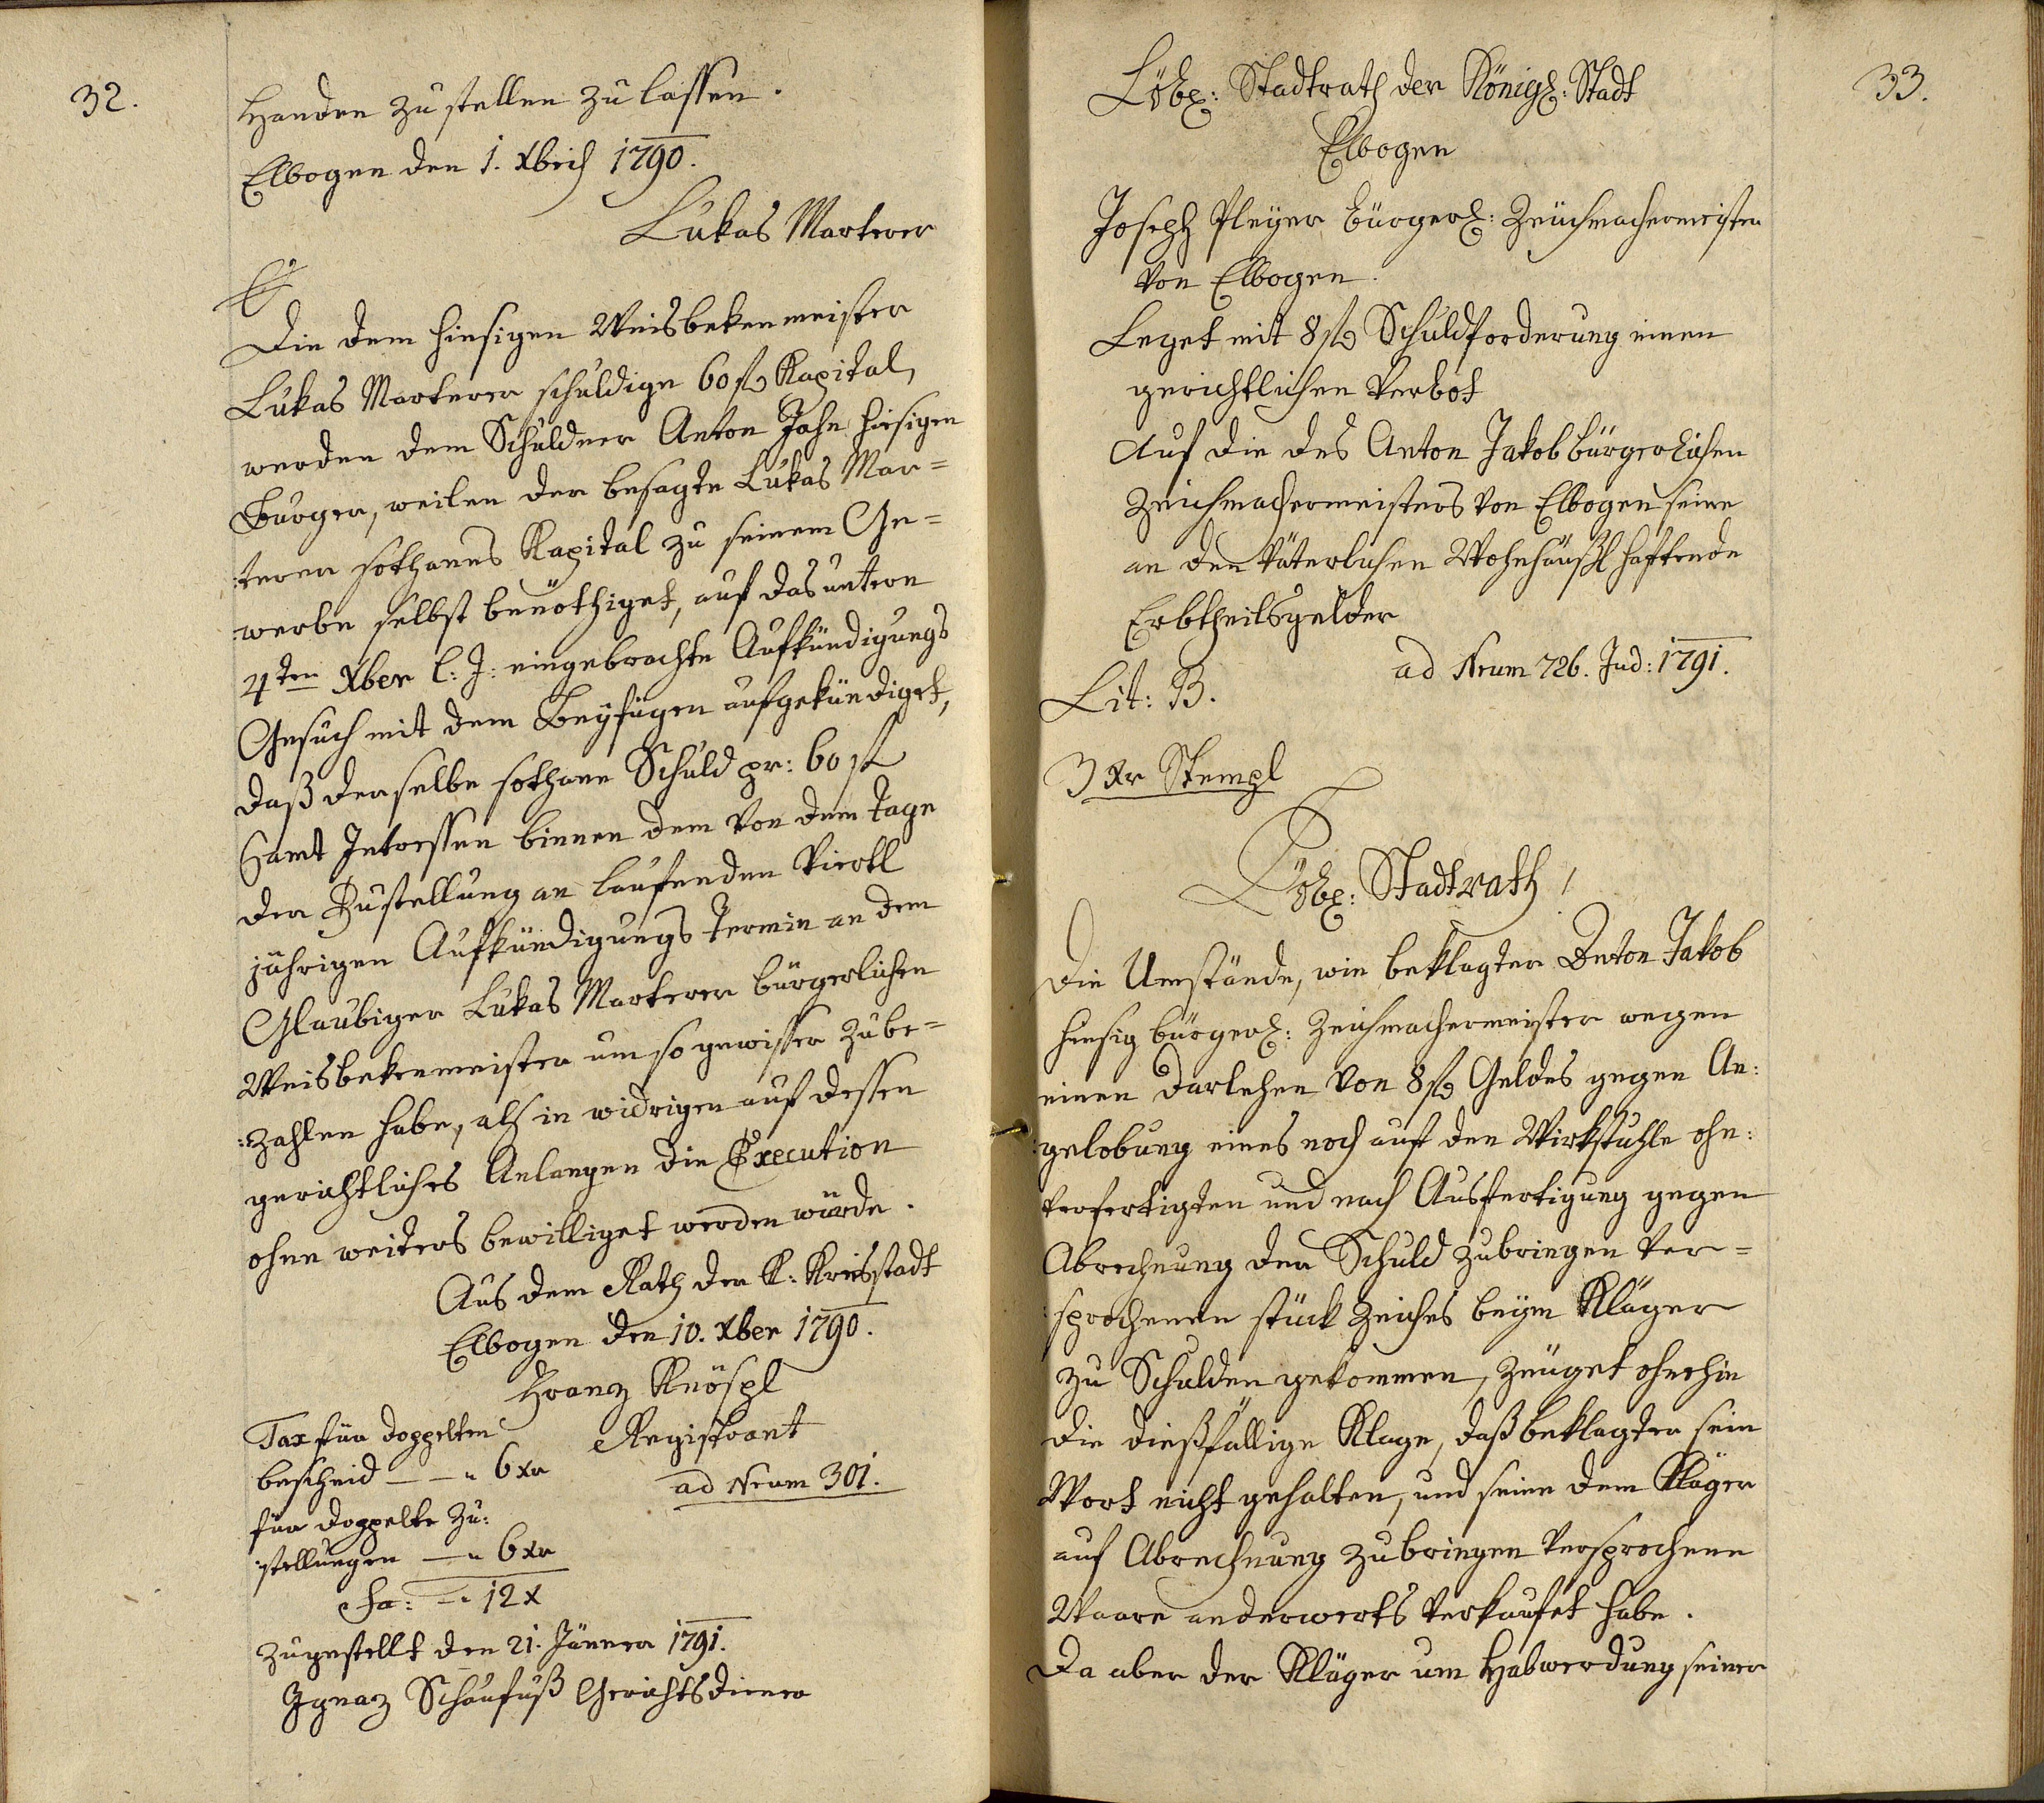 32.
Handen zu stellen zu lassen.
Elbogen den 1. Xbris 1790.
Lukas Marterer
Die dem hiesigen Weisbekenmeister
Lukas Marterer schuldige 60 fl Kapital,
werden dem Schuldner Anton Jahn hiesigen
Burger, weilen der besagte Lukas Mar=
:terer sothanes Kapital zu seinem Ge=
:werbe selbst benöthiget, auf das untern
4ten Xber l: J: eingebrachte Aufkündigungs
Gesuch mit dem Beyfügen aufgekündiget,
daß derselbe sothane Schuld pr: 60 fl
Samt Intressen binnen dem von dem Tage
der Zustellung an laufenden Viertl
jährigen Aufkündigungs Termin an dem
Glaubiger Lukas Marterer bürgerlichen
Weisbekenmeister um so gewisser zube=
:zahlen habe, als in widrigen auf dessen
gerichtliches Anlangen die Execution
ohne weiters bewilliget werden würde.
Aus dem Rath der K: Kreisstadt
Elbogen den 10. Xber 1790.
Franz Knöspl
Registrant
ad Nrum 301.
Tax für doppelten
bescheid — — " 6 xr
für doppelte Zu:
:stellungen — " 6 xr
Sa: — " 12 x
zugestellt den 21. Jänner 1791.
Ignaz Schaufuß Gerichtsdiener
33.
Löbl: Stadtrath der Königl: Stadt
Elbogen
Joseph Pleyer bürgerl: Zeüchmachermeister
von Elbogen.
Leget mit 8 fl Schuldforderung einen
gerichtlichen Verbot
Auf die des Anton Jakob bürgerlichen
Zeichmachermeisters von Elbogen seine
an den väterlichen Wohnhäusl haftende
Erbtheilsgelder
ad Nrum 726. Jud: 1791.
Lit: B.
3 Xr Stempl
Löbl: Stadtrath!
Die Umstände, wie beklagter Anton Jakob
hiesig bürgerl: Zeichmachermeister wegen
einen Darlehen von 8 fl Geldes gegen An:
:gelobung eines noch auf den Wirkstuhle ohn:
verfertigten und nach Ausfertigung gegen
Abrechnung der Schuld zubringen ver=
:sprochenen stück Zeiches beym Kläger
zu Schulden gekommen, zeüget ohnehin
die dießfällige Klage, daß beklagter sein
Wort nicht gehalten, und seine dem Kläger
auf Abrechnung zubringen versprochene
Waare anderwerts verkaufet habe.
Da aber der Kläger um Habwerdung seiner